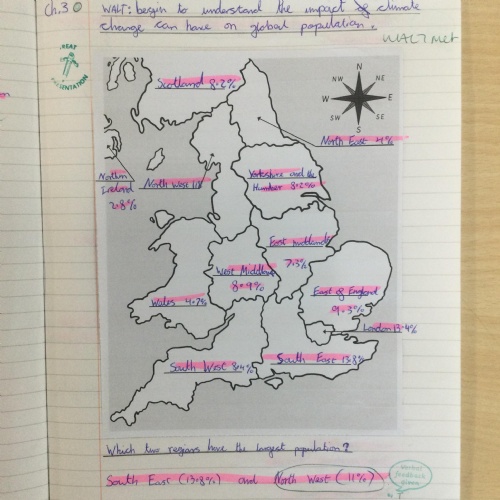 Ch.3
WALT: begin to understand the impact of climate
change can have on global population.
WALT Met
GREAT
PRESENTATION
Scotland 8.2%
N
NW NE
W E
SW SE
S
North East 4%
Northern
Ireland
2.8%
North west 11%
Yorkshire and the
Humber 8.2%
East midlands
7.3%
West Midlands
8.9%
East of England
9.3%
Wales 4.7%
London 13.4%
South West 8.4%
South East 13.8%
Which two regions have the largest population?
South East (13.8%) and North West (11%)
verbal
feedback
given